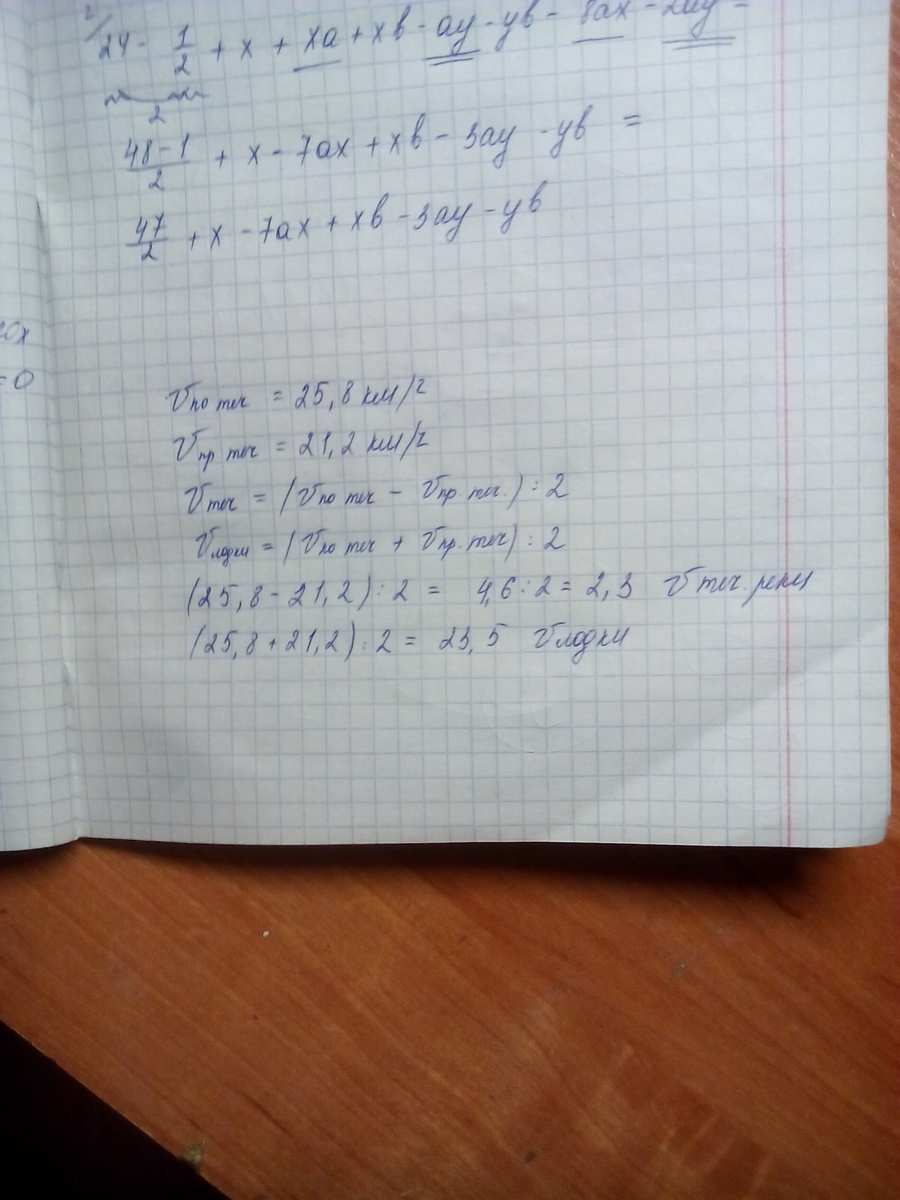 24 - 1/2 + x + xa + xb - ay - yb - 8ax - 2ay =
2
48-1/2 + x - 7ax + xb - 3ay - yb =
47/2 + x - 7ax + xb - 3ay - yb
=0
Vпо теч = 25,8 км/ч
Vпр теч = 21,2 км/ч
Vтеч = (Vпо теч - Vпр. теч.) : 2
Vлодки = (Vпо теч + Vпр. теч) : 2
(25,8 - 21,2) : 2 = 4,6 : 2 = 2,3 Vтеч. реки
(25,8 + 21,2) : 2 = 23,5 Vлодки